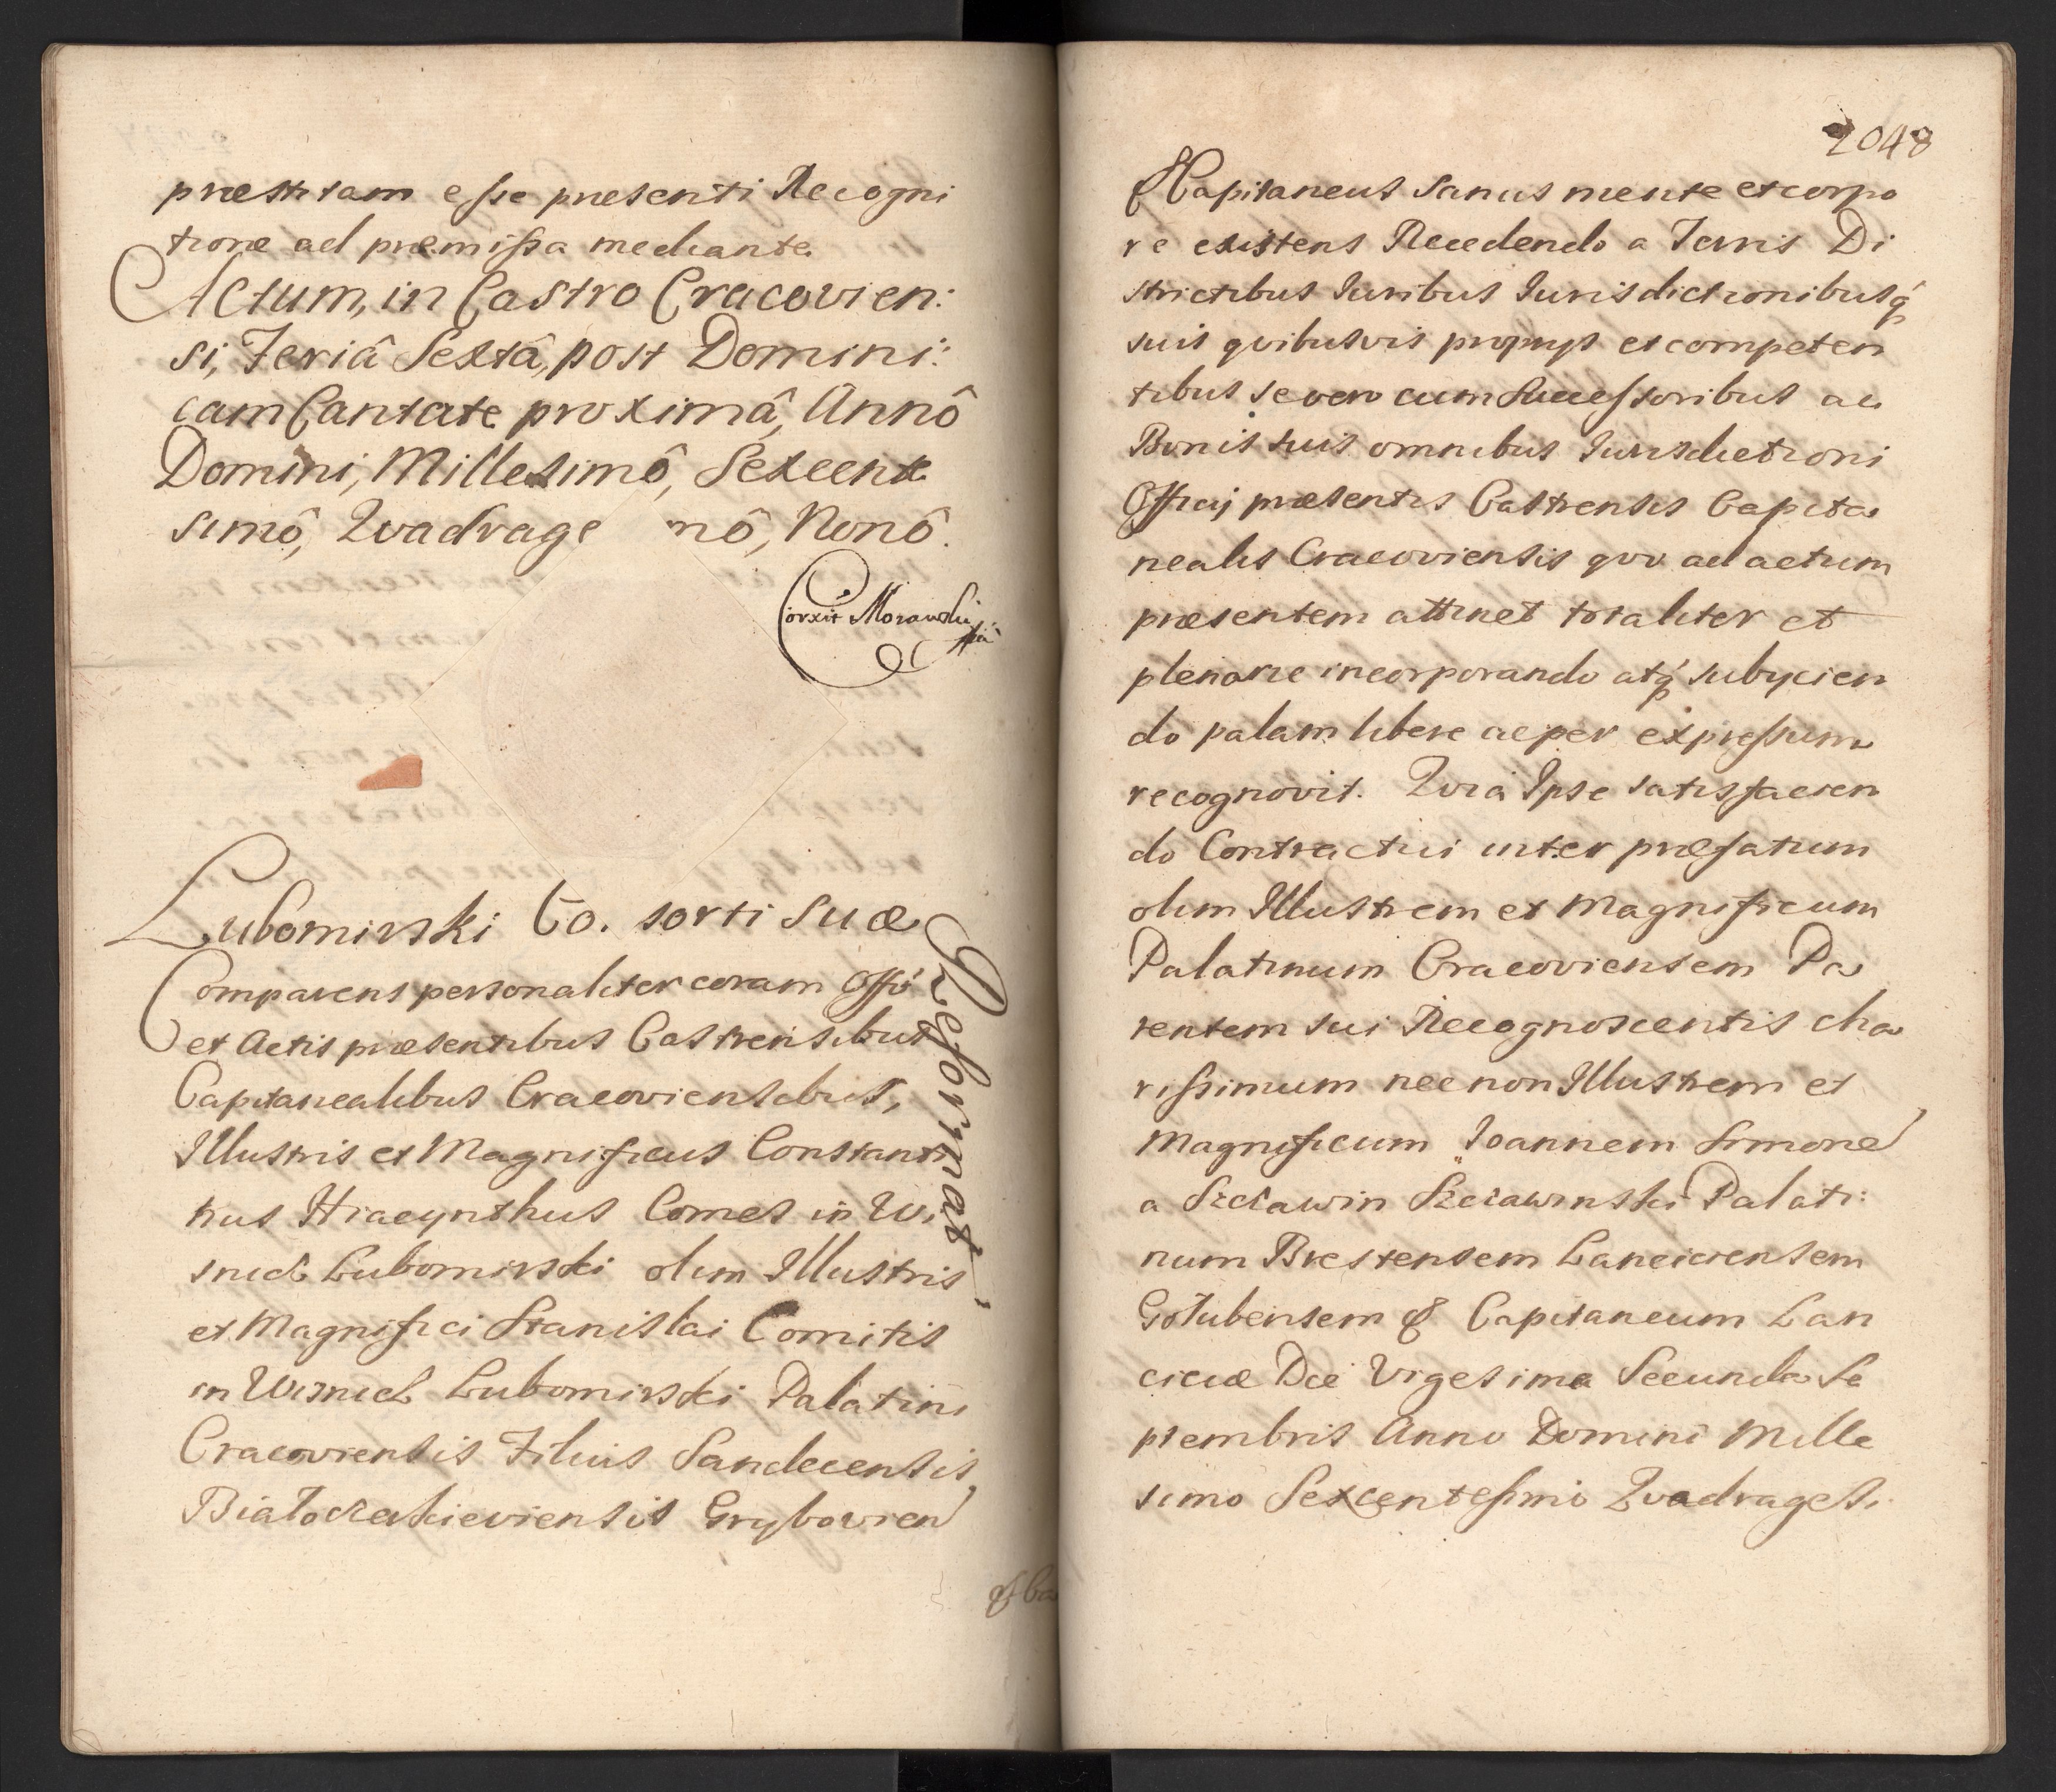 præstitam esse præsenti Recogni
tione ad præmissa mediante.
Actum, in Castro Cracovien:
si, Feriâ Sextâ, post Domini:
cam Cantate proximâ, Annô
Domini, Millesimô, Sexcente
simô, Qvadrage nô, Nonô.
Corxit Morawski
Lubomirski Co. sorti suæ
Reformat
Comparens personaliter coram Offo
et Actis præsentibus Castrensibus
Capitanealibus Cracoviensibus,
Illustris et Magnificus Constanti
nus Hiacynthus Comes in Wi
snicz Lubomirski olim Illustris
et Magnifici Stanislai Comitis
in Wisnicz Lubomirski Palatini
Cracoviensis Filius Sandecensis
Białocerkieviensis Grybovien
& Ca
2048
& Capitaneus Sanus mente et corpo
re existens Recedendo a Terris Di
strictibus Iuribus Iurisdictionibusq́
suis qvibusvis proprys et competen
tibus se vero cum Successoribus ac
Bonis suis omnibus Iurisdictioni
Officij præsentis Castrensis Capita
nealis Cracoviensis qvo ad actum
præsentem attinet totaliter et
plenarie incorporando atq́ subycien
do palam libere ac per expressum
recognovit. Qvia Ipse satisfacien
do Contractui inter præfatum
olim Illustrem et Magnificum
Palatinum Cracoviensem Pa
rentem sui Recognoscentis cha
rissimum nec non Illustrem et
Magnificum Ioannem Simone
a Szczawin Szczawinski Palati:
num Brestensem Lanciciensem
Gołubensem & Capitaneum Lan
ciciæ Die Vigesima Secunda Se
ptembris Anno Domini Mille
simo Sexcentesimo Qvadragesi